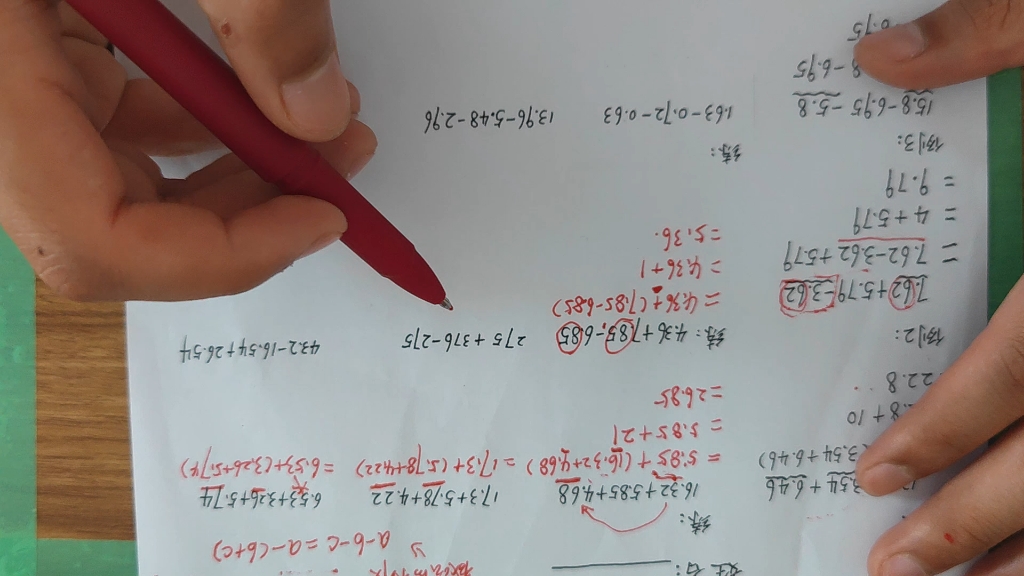 姓名:
a-b-c=a-(b+c)
练:
16.32+5.85+4.68
=5.85+(16.32+4.68)
=5.85+21
=26.85
17.3+5.78+4.22
=17.3+(5.78+4.22)
6.53+3.26+5.74
=6.53+(3.26+5.74)
3.54+6.46
3.54+6.46)
2.8+10
22.8
例2:
7.62+5.79-3.62
=7.62-3.62+5.79
=4+5.79
=9.79
练:
4.36+7.85-6.85
=4.36+(7.85-6.85)
=4.36+1
=5.36.
275+376-275
43.2-16.54+26.54
例3:
15.8-6.95-5.8
8-6.95
6.95
练:
1.63-0.72-0.63
13.96-5.48-2.96